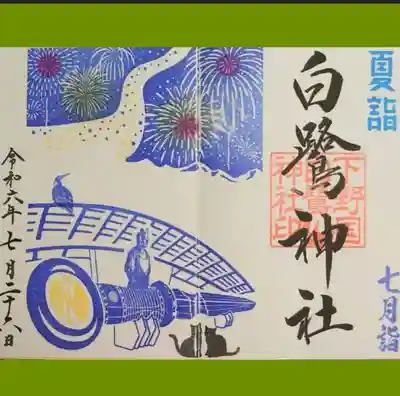 夏詣
七月詣
白鷺神社
下野国
神社印
令和六年七月二十六日